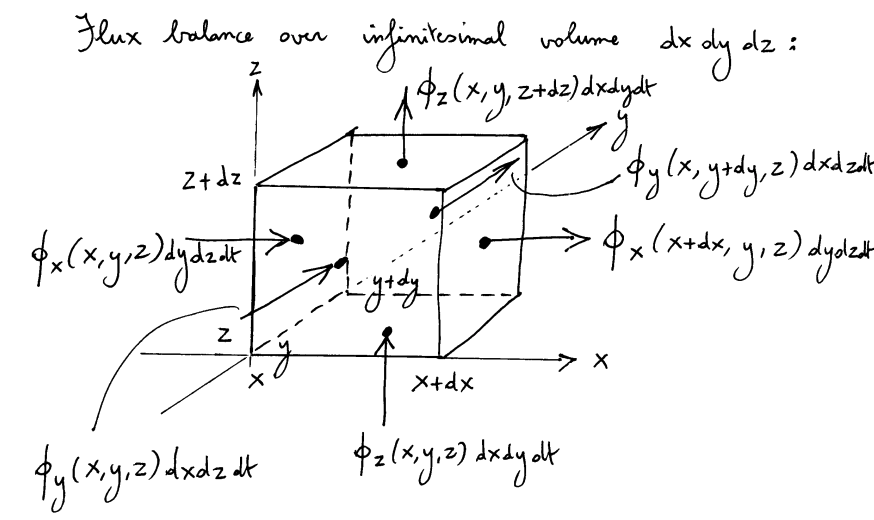 Flux balance over infinitesimal volume dx dy dz :
z
ϕz(x, y, z+dz) dxdydt
y
z+dz
ϕy(x, y+dy, z) dxdzdt
ϕx(x,y,z) dydzdt
ϕx(x+dx, y, z) dydzdt
y+dy
z
y
x
x
x+dx
ϕy(x,y,z) dxdzdt
ϕz(x,y,z) dxdydt